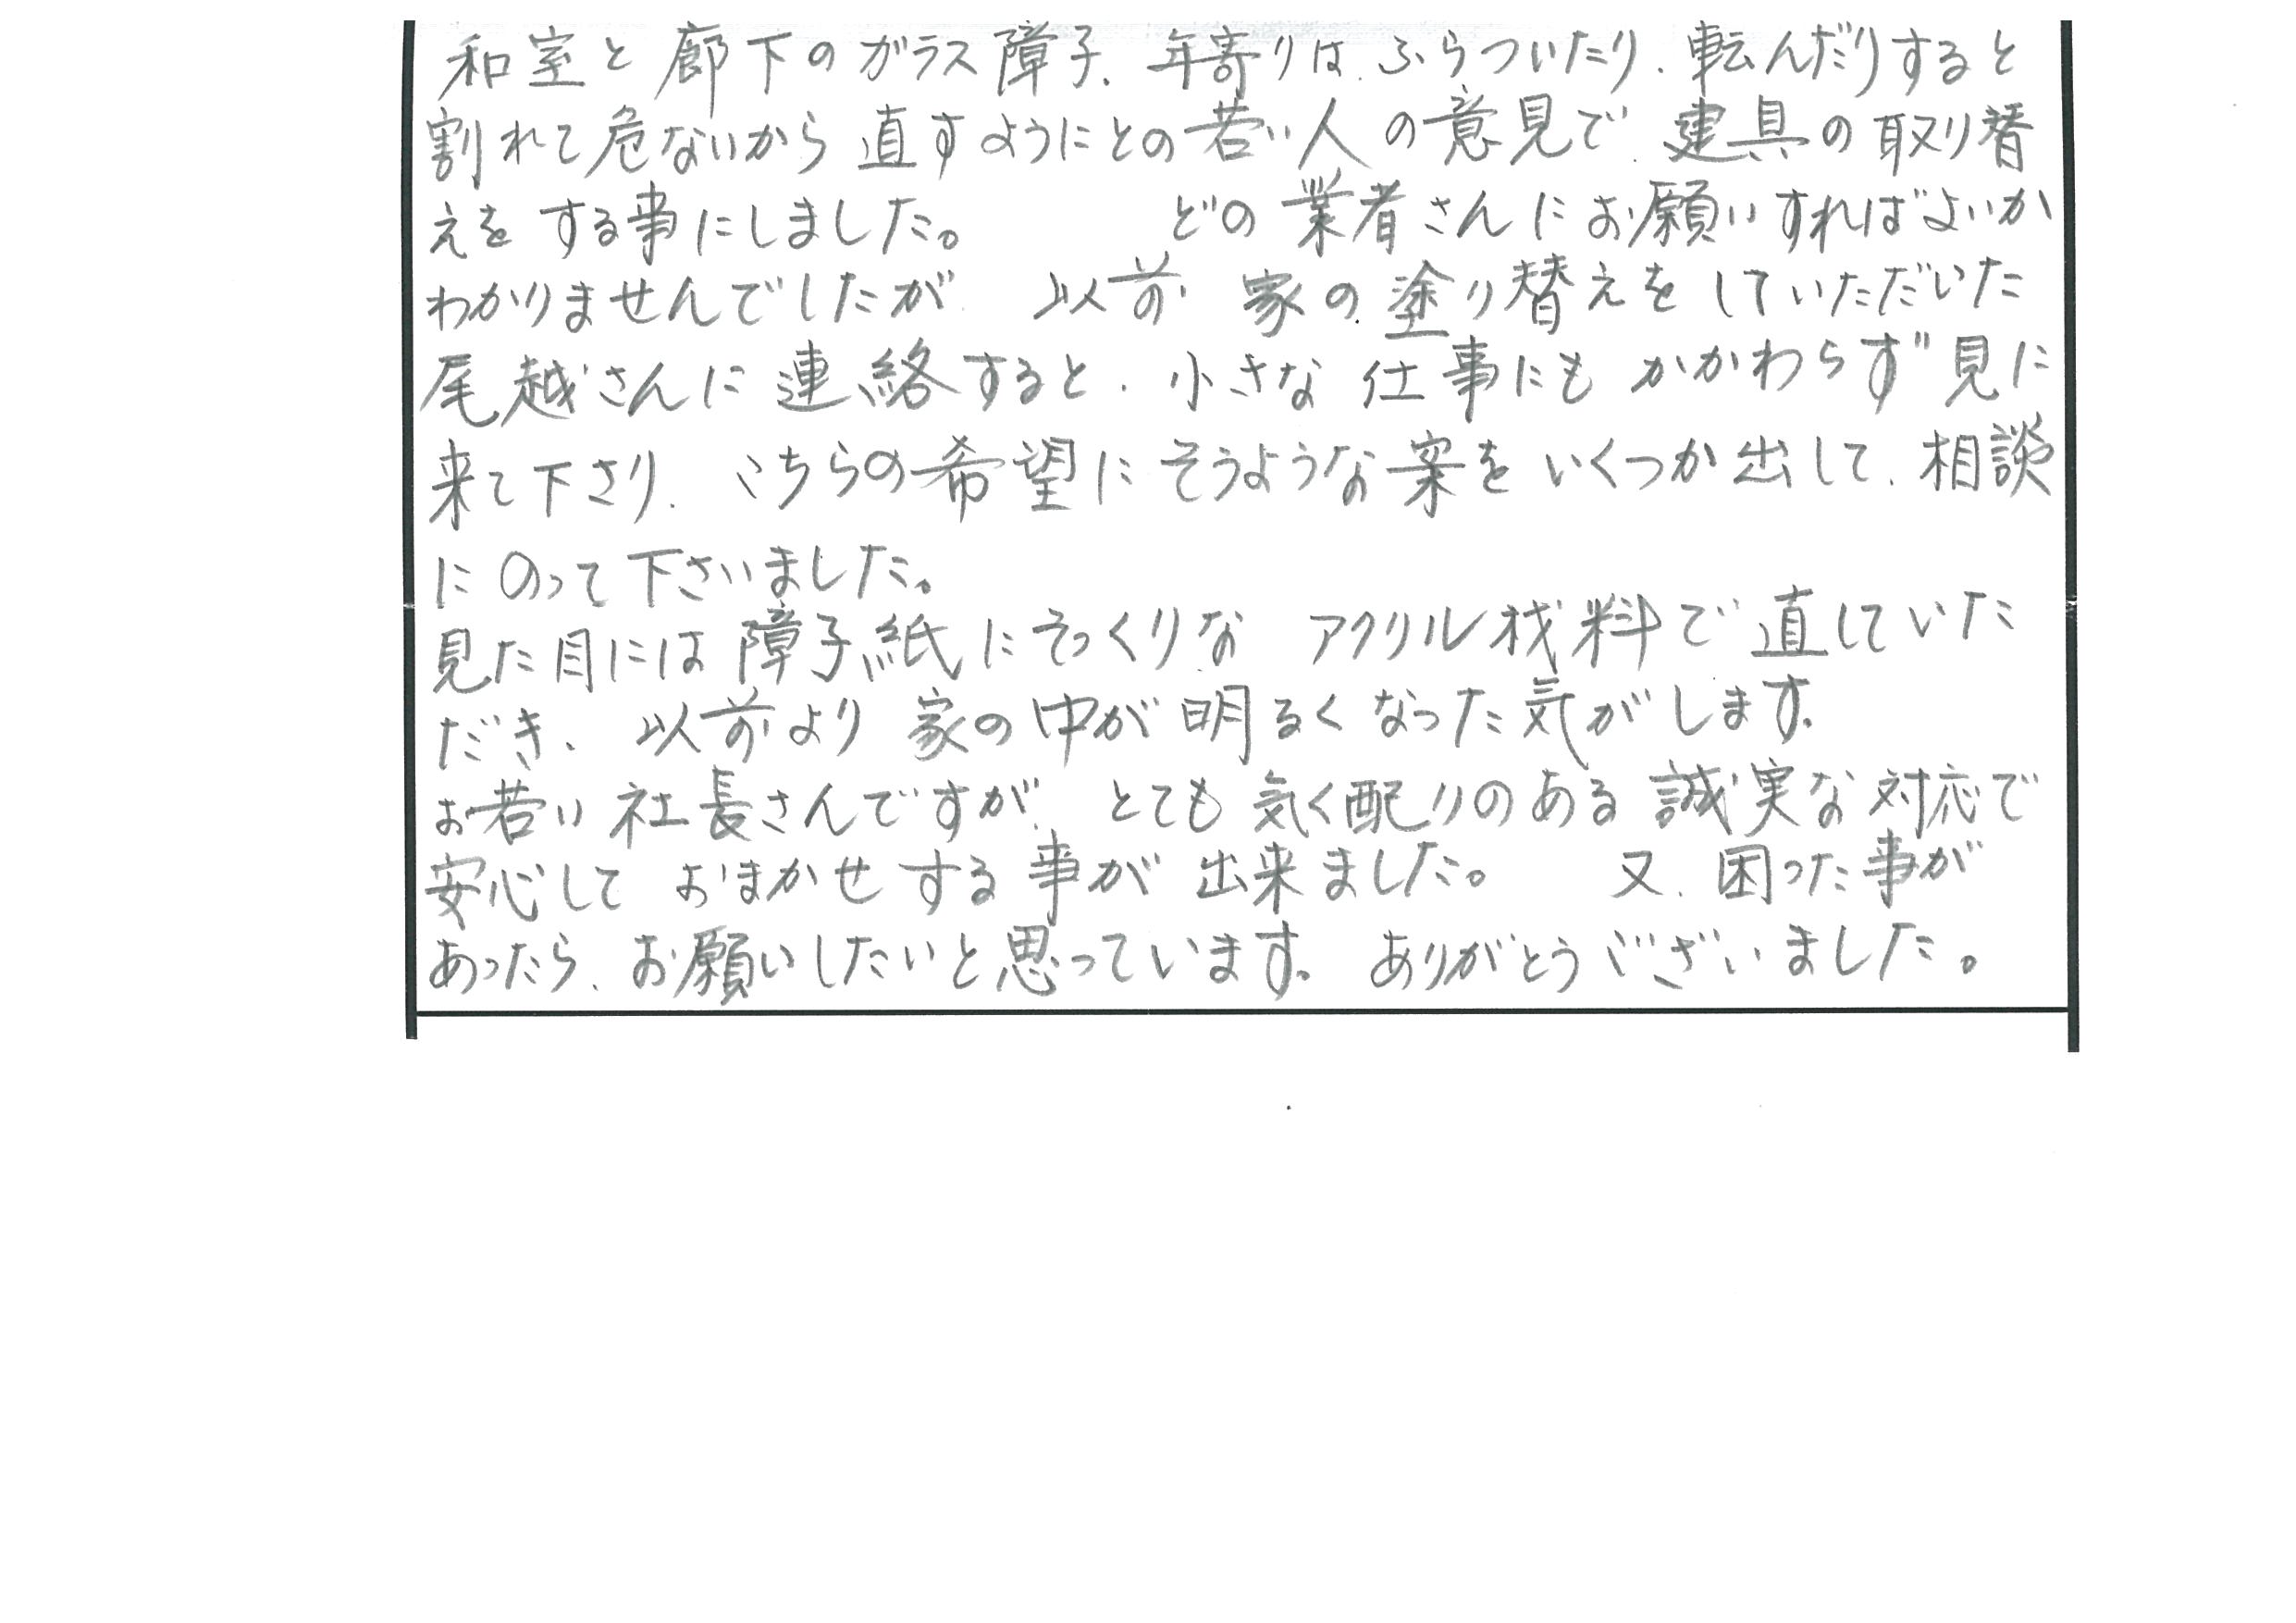 和室と廊下のガラス障子、年寄りは、ふらついたり、転んだりすると
割れて危ないから直すようにとの若い人の意見で、建具の取り替
えをする事にしました。　どの業者さんにお願いすればよいか
わかりませんでしたが、以前家の塗り替えをしていただいた
尾越さんに連絡すると、小さな仕事にもかかわらず見に
来て下さり、こちらの希望にそうような案をいくつか出して、相談
にのって下さいました。
見た目には障子紙にそっくりな アクリル材料で直していた
だき、以前より家の中が明るくなった気がします。
お若い社長さんですが、とても気く配りのある誠実な対応で
安心しておまかせする事が出来ました。　又、困った事が
あったら、お願いしたいと思っています。ありがとうございました。